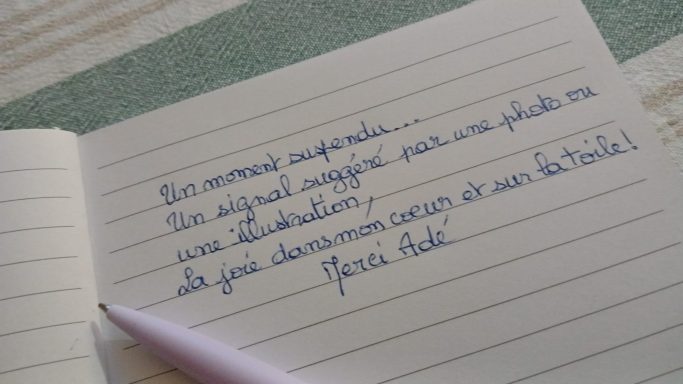 Un moment suspendu...
Un signal suggéré par une photo ou
une illustration,
La joie dans mon coeur et sur la toile!
Merci Adé